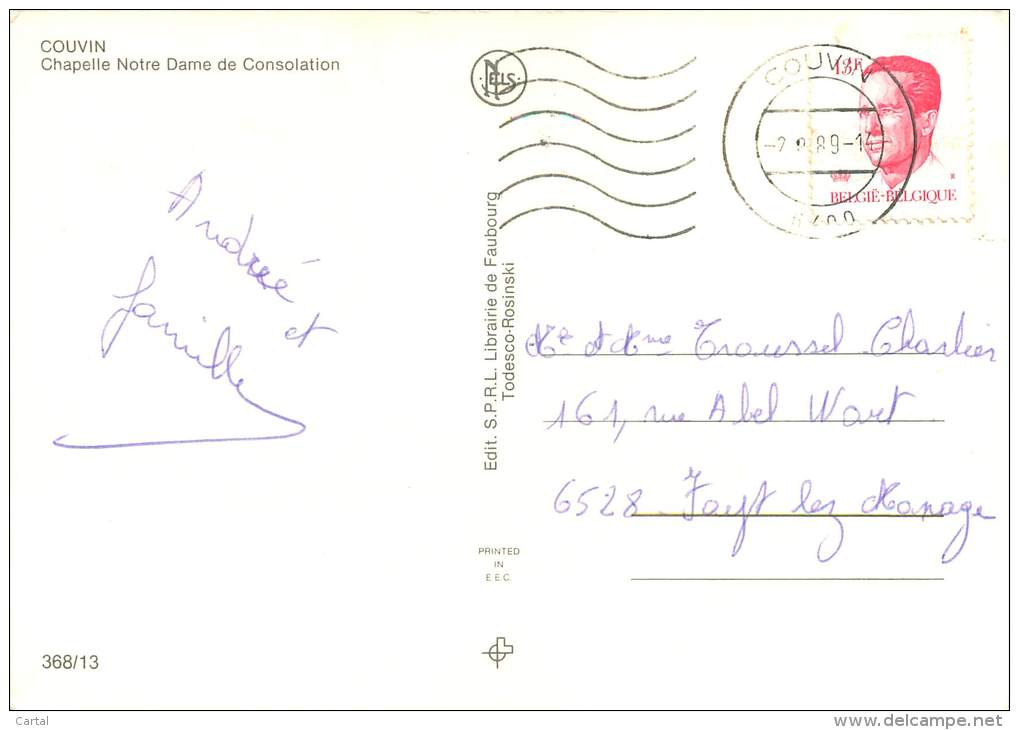 COUVIN
Chapelle Notre Dame de Consolation
NELS
COUVIN
13F
-2 89-14
BELGIË-BELGIQUE
Andrée
et
famille
Edit. S.P.R.L. Librairie de Faubourg
Todesco-Rosinski
Mr et Mme Troussel Charlier
161, rue Abel Wart
6528 Fayt lez Manage
PRINTED
IN
E.E.C.
368/13
Cartal
www.delcampe.net